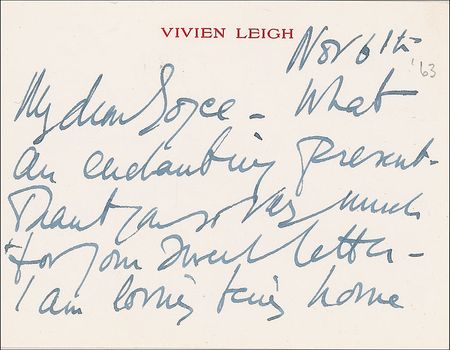 VIVIEN LEIGH
Nov 6th
'63
My dear Joyce - What
an enchanting present -
Thank you so very much
& for your sweet letter -
I am loving being home